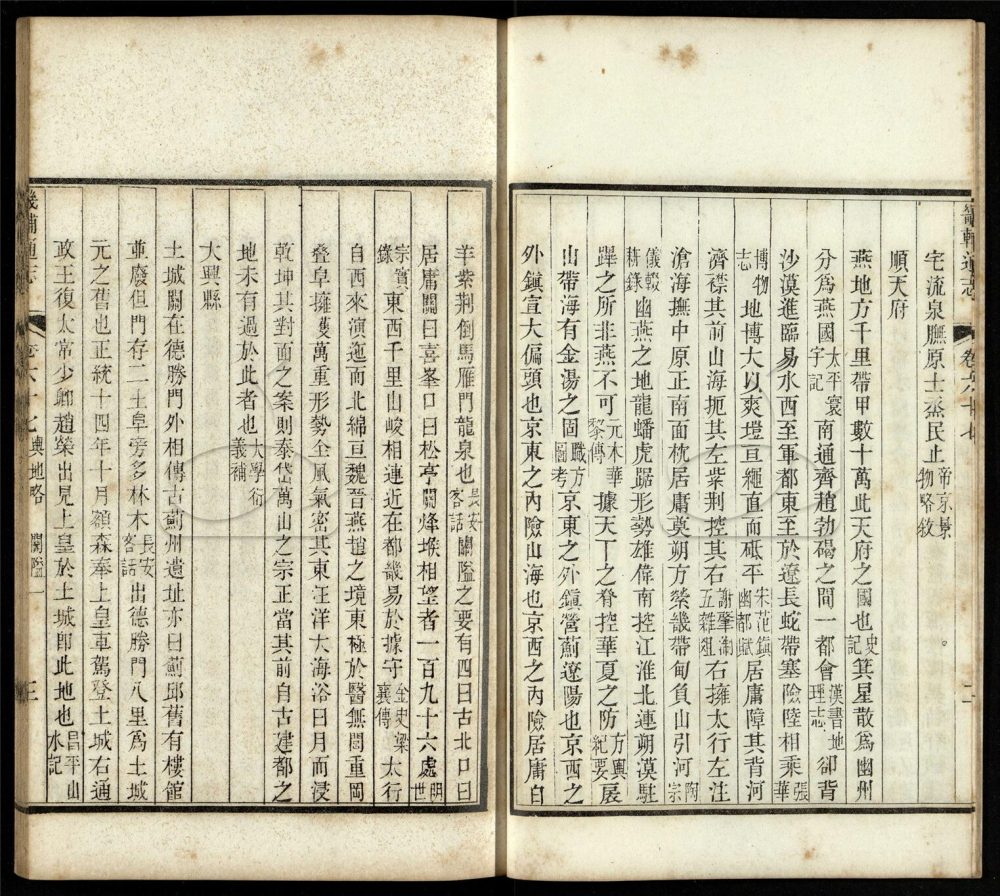 宅流泉膴原士烝民止帝京景物略敘
順天府
燕地方千里帶甲數十萬此天府之國也史記箕星散爲幽州
分爲燕國太平寰宇記南通齊趙勃碣之間一都會漢書地理志卻背
沙漠進臨易水西至軍都東至於遼長蛇帶塞險陸相乘張華
博物志地博大以爽塏亘繩直而砥平朱范鎮幽都賦居庸障其背河
濟襟其前山海扼其左紫荆控其右謝肇淛五雜俎右擁太行左注
滄海撫中原正南面枕居庸奠朔方縈畿帶甸負山引河陶宗
儀輟耕錄幽燕之地龍蟠虎踞形勢雄偉南控江淮北連朔漠駐
蹕之所非燕不可元木華黎傳據天下之脊控華夏之防方輿紀要扆
山帶海有金湯之固職方圖考京東之外鎮營薊遼陽也京西之
外鎮宣大偏頭也京東之內險山海也京西之內險居庸白
羊紫荆倒馬雁門龍泉也長安客話關隘之要有四曰古北口曰
居庸關曰喜峯口曰松亭關烽堠相望者一百九十六處明世
宗寶錄東西千里山峻相連近在都畿易於據守金史梁襄傳太行
自西來演迤而北綿亘魏晉燕趙之境東極於醫無閭重岡
疊阜擁護萬重形勢全風氣密其東汪洋大海浴日月而浸
乾坤其對面之案則泰岱萬山之宗正當其前自古建都之
地未有過於此者也大學衍義補
大興縣
土城關在德勝門外相傳古薊州遺址亦曰薊邱舊有樓館
並廢但門存二土阜旁多林木長安客話出德勝門八里爲土城
元之舊也正統十四年十月額森奉上皇車駕登土城右通
政王復太常少卿趙榮出見上皇於土城卽此地也昌平山水記
畿輔通志
卷六十七
輿地略
關隘一
三